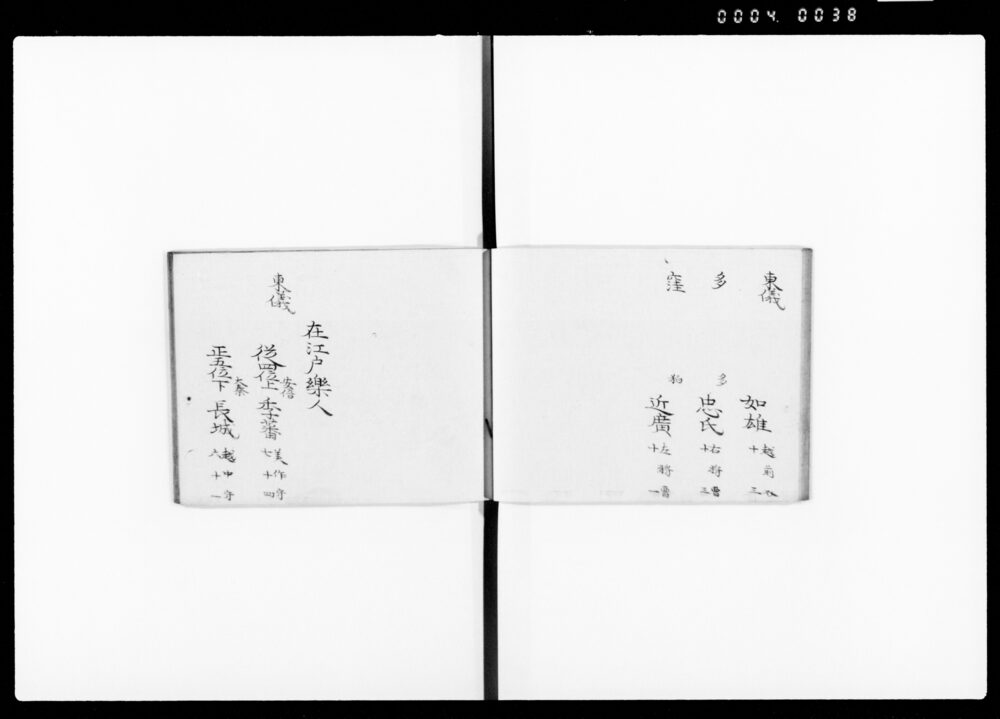 0004 0038
東儀 如雄 越前 十三
多 多 忠氏 右將曹 十三
窪 狛 近廣 左將曹 十一
在江戸樂人
東儀 從四位上 安倍 季蕃 美作守 七十四
正五位下 太秦 長城 越中守 六十一